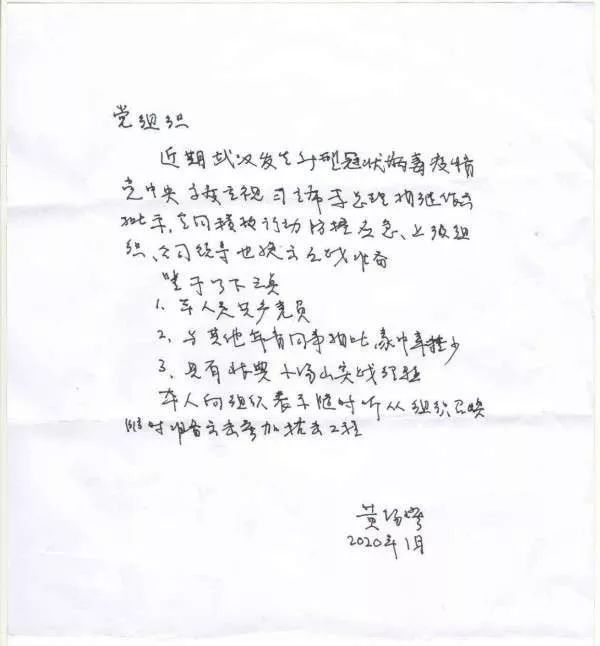 党组织
近期武汉发生新型冠状病毒疫情
党中央高度重视 习主席 李总理相继作出
批示,全国积极行动防控应急、上级组
织、公司领导也提出应战准备
鉴于以下三点
1、本人是共产党员
2、与其他年青同事相比,家中牵挂少
3、具有非典小汤山实战经验
本人向组织表示随时听从组织召唤
随时准备出击参加抗击工程
黄
2020年1月